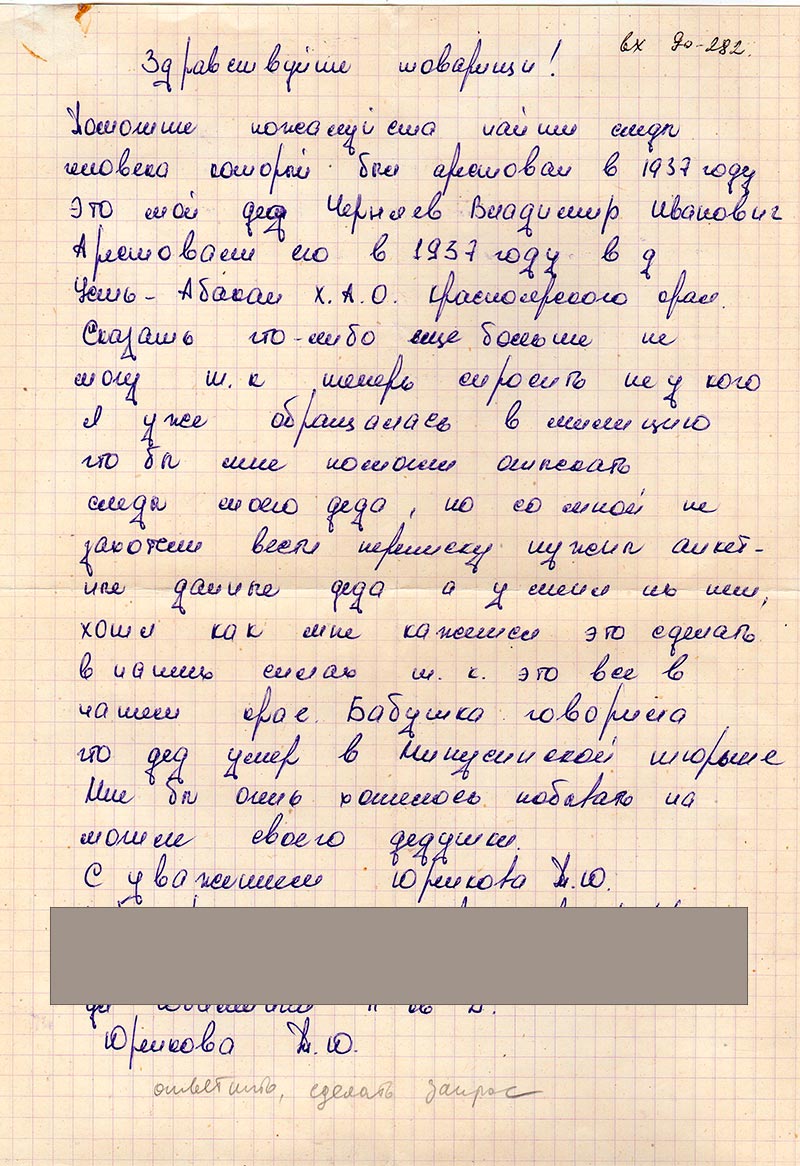 вх до-282.
Здравствуйте товарищи!
Помогите пожалуйста найти следы
человека который был арестован в 1937 году
Это мой дед Черняев Владимир Иванович
Арестовали его в 1937 году в д
Усть-Абакан Х.А.О. Красноярского края.
Сказать что-либо еще больше не
могу т.к теперь спросить не у кого
Я уже обращалась в милицию
что бы мне помогли отыскать
следы моего деда, но со мной не
захотели вести переписку нужны анкет-
ные данные деда а у меня их нет,
хотя как мне кажется это сделать
в наших силах т.к. это все в
нашем крае. Бабушка говорила
что дед умер в Минусинской тюрьме
Мне бы очень хотелось побывать на
могиле своего дедушки.
С уважением Юрликова Т.Ю.
Юрликова Т.Ю.
ответить, сделать запрос